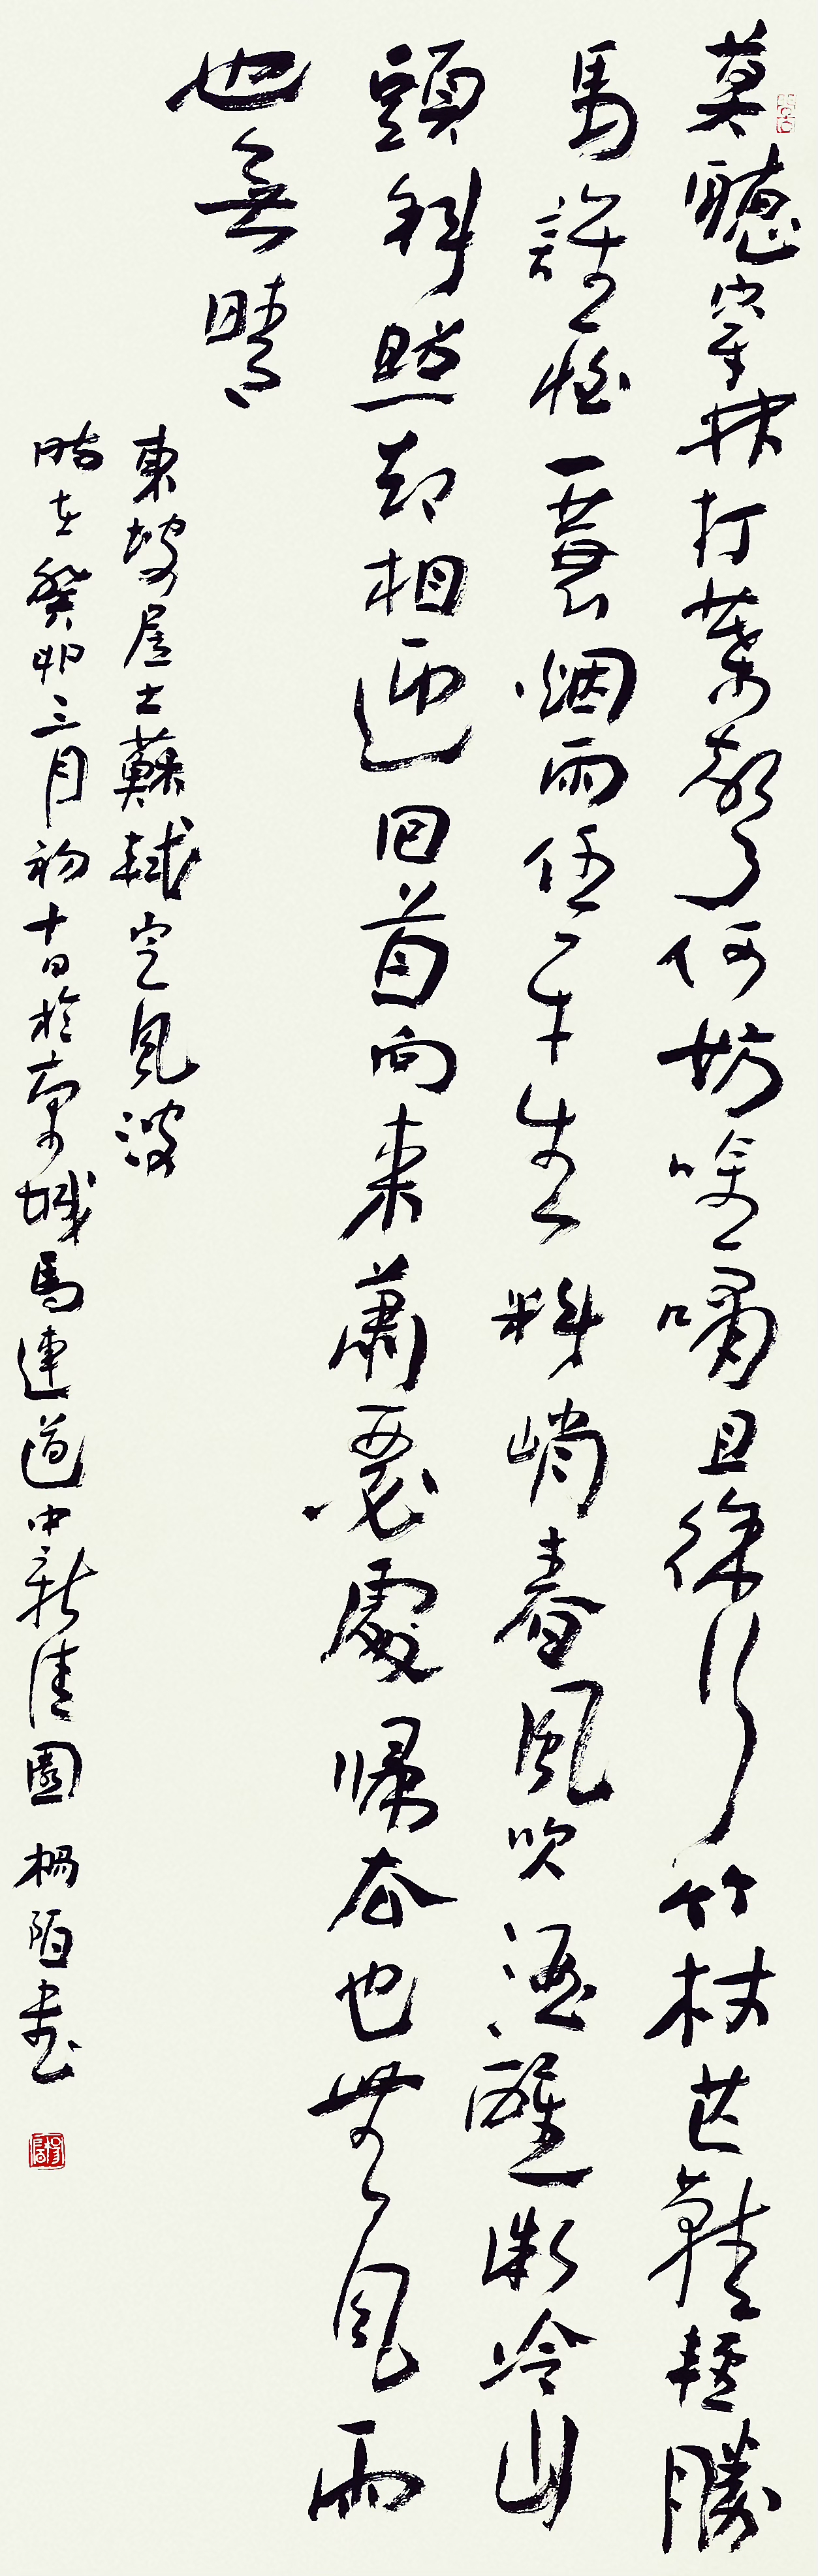 莫聽穿林打葉聲何妨吟嘯且徐行竹杖芒鞋輕勝
馬誰怕一蓑烟雨任平生料峭春風吹酒醒微冷山
頭斜照却相迎回首向來蕭瑟處帰去也無風雨
也無晴
東坡居士蘇軾定風波
時在癸卯三月初十日於京城馬連道中新佳園楊陌書